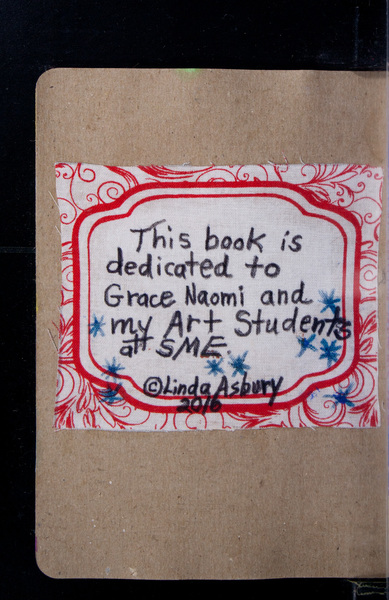 This book is
dedicated to
Grace Naomi and
my Art Students
at SME
©Linda Asbury
2016